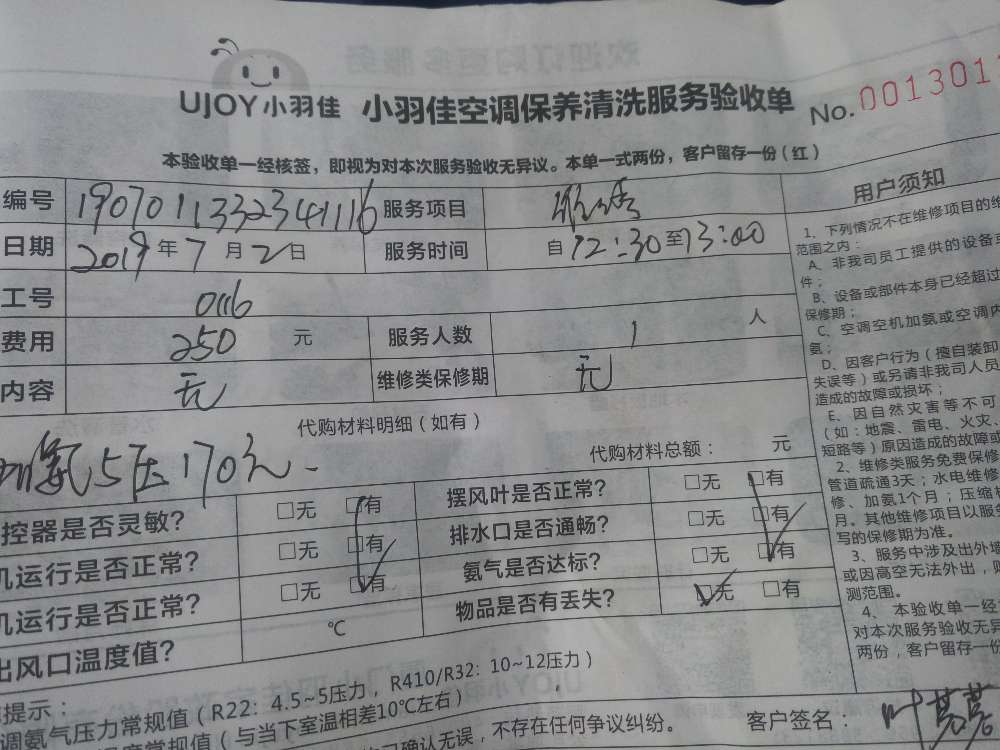 UJOY小羽佳 小羽佳空调保养清洗服务验收单 No.001301
本验收单一经核签，即视为对本次服务验收无异议。本单一式两份，客户留存一份（红）
编号 1907011332341116 服务项目 维修
日期 2019年7月2日 服务时间 自12:30至13:00
工号 0116
费用 250 元 服务人数 1 人
内容 无 维修类保修期 无
代购材料明细（如有）
加氨5压170元
代购材料总额： 元
控器是否灵敏？ □无 □有 摆风叶是否正常？ □无 □有
机运行是否正常？ □无 □有 排水口是否通畅？ □无 □有
机运行是否正常？ □无 □有 氨气是否达标？ □无 □有
出风口温度值？ ℃ 物品是否有丢失？ □无 □有
提示：
调氨气压力常规值（R22：4.5~5压力，R410/R32：10~12压力）
度常规值（与当下室温相差10℃左右）
确认无误，不存在任何争议纠纷。 客户签名：
用户须知
1、下列情况不在维修项目的维
范围之内：
A、非我司员工提供的设备或
件；
B、设备或部件本身已经超过
保修期；
C、空调空机加氨或空调内
氨；
D、因客户行为（擅自装卸
失误等）或另请非我司人员
造成的故障或损坏；
E、因自然灾害等不可
（如：地震、雷电、火灾、
短路等）原因造成的故障或
2、维修类服务免费保修
管道疏通3天；水电维修
修、加氨1个月；压缩
月。其他维修项目以服务
写的保修期为准。
3、服务中涉及出外墙
或因高空无法外出，
测范围。
4、本验收单一经
对本次服务验收无异
两份，客户留存一份